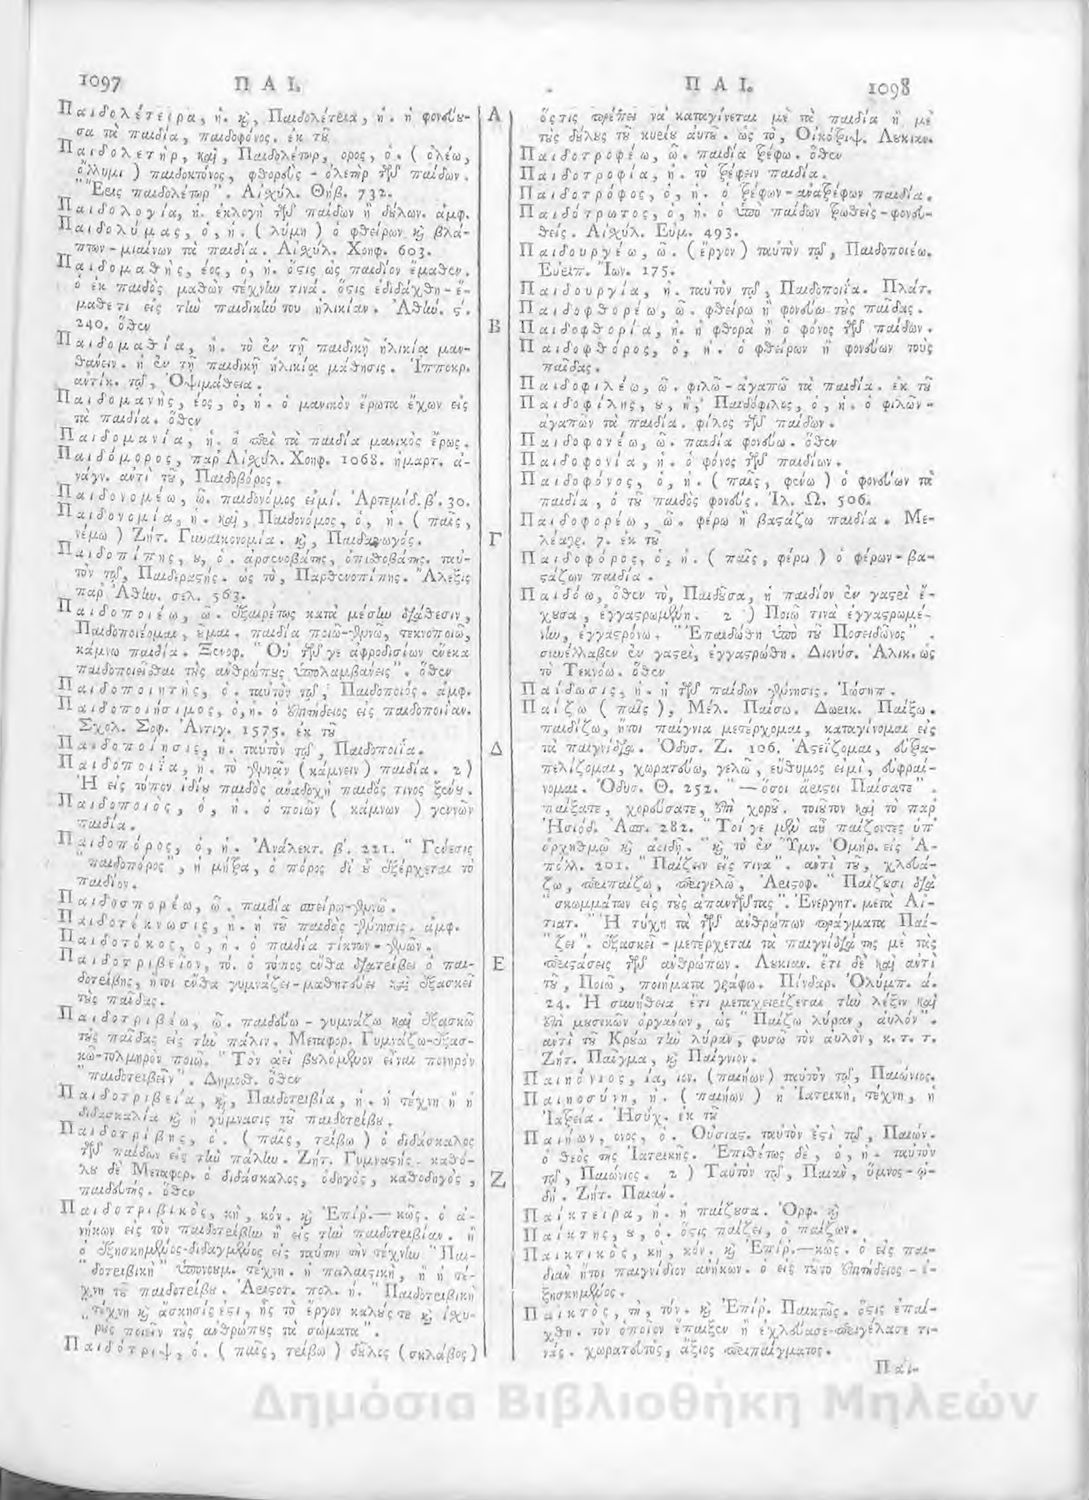 1097 Π Α Ι.
Παιδολέτειρα, ἡ. ϗ, Παιδολέτεια, ἡ. ἡ φονεύου-
σα τὰ παιδία, παιδοφόνος. ἐκ τοῦ
Παιδολετὴρ, καὶ, Παιδολέτωρ, ορος, ὁ. ( ὀλέω,
ὄλλυμι ) παιδοκτόνος, φθορεὺς - ὀλετὴρ τῶν παίδων.
"Ἔρις παιδολέτωρ". Αἰσχύλ. Θηβ. 732.
Παιδολογία, ἡ. ἐκλογὴ τῶν παίδων ἢ δούλων. ἀμφ.
Παιδολύμας, ὁ, ἡ. ( λύμη ) ὁ φθείρων ϗ βλά-
πτων - μιαίνων τὰ παιδία. Αἰσχύλ. Χοηφ. 603.
Παιδομαθὴς, έος, ὁ, ἡ. ὅςις ὡς παιδίον ἔμαθεν.
ὁ ἐκ παιδὸς μαθὼν τέχνην τινά. ὅςις ἐδιδάχθη - ἔ-
μαθέ τι εἰς τὴν παιδικήν του ἡλικίαν. Ἀθήν. ς΄.
240. ὅθεν
Παιδομαθία, ἡ. τὸ ἐν τῇ παιδικῇ ἡλικίᾳ μαν-
θάνειν. ἡ ἐν τῇ παιδικῇ ἡλικίᾳ μάθησις. Ἱπποκρ.
ἀντίκ. τῷ, Ὀψιμάθεια.
Παιδομανὴς, έος, ὁ, ἡ. ὁ μανικὸν ἔρωτα ἔχων εἰς
τὰ παιδία. ὅθεν
Παιδομανία, ἡ. ὁ περὶ τὰ παιδία μανικὸς ἔρως.
Παιδόμορος, παρ' Αἰσχύλ. Χοηφ. 1068. ἡμαρτ. ἀ-
νάγν. ἀντὶ τοῦ, Παιδοβόρος.
Παιδονομέω, ῶ. παιδονόμος εἰμί. Ἀρτεμίδ. β΄. 30.
Παιδονομία, ἡ. καὶ, Παιδονόμος, ὁ, ἡ. ( παῖς,
νέμω ) Ζήτ. Γυναικονομία. ϗ, Παιδαγωγός.
Παιδοπίπης, ου, ὁ. ἀρσενοβάτης, ὀπισθοβάτης. ταὐ-
τὸν τῷ, Παιδεραςής. ὡς τὸ, Παρθενοπίπης. Ἄλεξις
παρ' Ἀθήν. σελ. 563.
Παιδοποιέω, ῶ. ἐξαιρέτως κατὰ μέσην διάθεσιν,
Παιδοποιέομαι, οῦμαι. παιδία ποιῶ - γεννῶ, τεκνοποιῶ,
κάμνω παιδία. Ξενοφ. "Οὐ τῶν γε ἀφροδισίων ἕνεκα
παιδοποιεῖσθαι τοὺς ἀνθρώπους ὑπολαμβάνεις". ὅθεν
Παιδοποιητὴς, ὁ. ταὐτὸν τῷ, Παιδοποιός. ἀμφ.
Παιδοποιήσιμος, ὁ, ἡ. ὁ ἐπιτήδειος εἰς παιδοποιΐαν.
Σχολ. Σοφ. Ἀντιγ. 1575. ἐκ τοῦ
Παιδοποίησις, ἡ. ταὐτὸν τῷ, Παιδοποιΐα.
Παιδοποιΐα, ἡ. τὸ γεννᾶν ( κάμνειν ) παιδία. 2 )
Ἡ εἰς τόπον ἰδίου παιδὸς ἀναδοχὴ παιδός τινος ξένου.
Παιδοποιὸς, ὁ, ἡ. ὁ ποιῶν ( κάμνων ) γεννῶν
παιδία.
Παιδοπόρος, ὁ, ἡ. Ἀνάλεκτ. β΄. 221. "Γένεσις
"παιδοπόρος", ἡ μήτρα, ὁ πόρος δι' οὗ ἐξέρχεται τὸ
παιδίον.
Παιδοσπορέω, ῶ. παιδία σπείρω - γεννῶ.
Παιδοτέκνωσις, ἡ. ἡ τοῦ παιδὸς γέννησις. ἀμφ.
Παιδοτόκος, ὁ, ἡ. ὁ παιδία τίκτων - γεννῶν.
Παιδοτριβεῖον, τό. ὁ τόπος ἔνθα διατρίβει ὁ παι-
δοτρίβης, ἤτοι ἔνθα γυμνάζει - μαθητεύει καὶ ἐξασκεῖ
τοὺς παῖδας.
Παιδοτριβέω, ῶ. παιδεύω - γυμνάζω καὶ ἐξασκῶ
τοὺς παῖδας εἰς τὴν πάλην. Μεταφορ. Γυμνάζω - ἐξασ-
κῶ - τολμηρὸν ποιῶ. "Τὸν ἀεὶ βουλόμενον εἶναι πονηρὸν
"παιδοτριβεῖν". Δημοσθ. ὅθεν
Παιδοτριβεία, ϗ, Παιδοτριβία, ἡ. ἡ τέχνη ἢ ἡ
διδασκαλία ϗ ἡ γύμνασις τοῦ παιδοτρίβου.
Παιδοτρίβης, ὁ. ( παῖς, τρίβω ) ὁ διδάσκαλος
τῶν παίδων εἰς τὴν πάλην. Ζήτ. Γυμναςής. καθό-
λου δὲ Μεταφορ. ὁ διδάσκαλος, ὁδηγὸς, καθοδηγὸς,
παιδευτής. ὅθεν
Παιδοτριβικὸς, κὴ, κόν. ϗ Ἐπίρ. — κῶς. ὁ ἀ-
νήκων εἰς τὸν παιδοτρίβην ἢ εἰς τὴν παιδοτριβίαν. ἢ
ὁ ἐξησκημένος - διδαγμένος εἰς ταύτην τὴν τέχνην "Παι-
"δοτριβικὴ" ὑπονοουμ. τέχνη. ἡ παλαιςικὴ, ἢ ἡ τέ-
χνη τοῦ παιδοτρίβου. Ἀριςοτ. πολ. ή. "Παιδοτριβικὴ
"τέχνη ϗ ἄσκησίς ἐςι, ἧς τὸ ἔργον καλούς τε ϗ ἰσχυ-
ροὺς ποιεῖν τοὺς ἀνθρώπους τὰ σώματα".
Παιδότριψ, ὁ. ( παῖς, τρίβω ) δοῦλος ( σκλάβος )
Α
Β
Γ
Δ
Ε
Ζ
Π Α Ι. 1098
ὅςτις πρέπει νὰ καταγίνεται μὲ τὰ παιδία ἢ μὲ
τοὺς δούλους τοῦ κυρίου αὐτοῦ. ὡς τὸ, Οἰκότριψ. Λουκιαν.
Παιδοτροφέω, ῶ. παιδία τρέφω. ὅθεν
Παιδοτροφία, ἡ. τὸ τρέφειν παιδία.
Παιδοτρόφος, ὁ, ἡ. ὁ τρέφων - ἀνατρέφων παιδία.
Παιδότρωτος, ὁ, ἡ. ὁ ὑπὸ παίδων τρωθεὶς - φονευ-
θείς. Αἰσχύλ. Εὐμ. 493.
Παιδουργέω, ῶ. ( ἔργον ) ταὐτὸν τῷ, Παιδοποιέω.
Εὐριπ. Ἴων. 175.
Παιδουργία, ἡ. ταὐτὸν τῷ, Παιδοποιΐα. Πλάτ.
Παιδοφθορέω, ῶ. φθείρω ἢ φονεύω τοὺς παῖδας.
Παιδοφθορία, ἡ. ἡ φθορὰ ἢ ὁ φόνος τῶν παίδων.
Παιδοφθόρος, ὁ, ἡ. ὁ φθείρων ἢ φονεύων τοὺς
παῖδας.
Παιδοφιλέω, ῶ. φιλῶ - ἀγαπῶ τὰ παιδία. ἐκ τοῦ
Παιδοφίλης, ου, ἢ, Παιδόφιλος, ὁ, ἡ. ὁ φιλῶν -
ἀγαπῶν τὰ παιδία. φίλος τῶν παίδων.
Παιδοφονέω, ῶ. παιδία φονεύω. ὅθεν
Παιδοφονία, ἡ. ὁ φόνος τῶν παιδίων.
Παιδοφόνος, ὁ, ἡ. ( παῖς, φένω ) ὁ φονεύων τὰ
παιδία, ὁ τοῦ παιδὸς φονεύς. Ἰλ. Ω. 506.
Παιδοφορέω, ῶ. φέρω ἢ βαςάζω παιδία. Με-
λέαγρ. 7. ἐκ τοῦ
Παιδοφόρος, ὁ, ἡ. ( παῖς, φέρω ) ὁ φέρων - βα-
ςάζων παιδία.
Παιδόω, ὅθεν τὸ, Παιδοῦσα, ἡ παιδίον ἐν γαςρὶ ἔ-
χουσα, ἐγγαςρωμένη. 2 ) Ποιῶ τινὰ ἐγγαςρωμέ-
νην, ἐγγαςρόνω. "Ἐπαιδώθη ὑπὸ τοῦ Ποσειδῶνος".
συνέλλαβεν ἐν γαςρὶ, ἐγγαςρώθη. Διονύσ. Ἁλικ. ὡς
τὸ Τεκνόω. ὅθεν
Παίδωσις, ἡ. ἡ τῶν παίδων γέννησις. Ἰώσηπ.
Παίζω ( παῖς ), Μέλ. Παίσω. Δωρικ. Παίξω.
παιδίζω, ἤτοι παίγνια μετέρχομαι, καταγίνομαι εἰς
τὰ παιγνίδια. Ὀδυσ. Ζ. 106. Ἀςεΐζομαι, εὐτρα-
πελίζομαι, χωρατεύω, γελῶ, εὔθυμος εἰμὶ, εὐφραί-
νομαι. Ὀδυσ. Θ. 252. "— ὅσοι ἄριςοι Παίσατε".
παίξατε, χορεύσατε, ἐπὶ χοροῦ. τοιοῦτον καὶ τὸ παρ'
Ἡσιόδ. Ἀσπ. 282. "Τοί γε μὲν αὖ παίζοντες ὑπ'
ὀρχηθμῷ ϗ ἀοιδῇ. "ϗ τὸ ἐν Ὕμν. Ὁμηρ. εἰς Ἀ-
πόλλ. 201. "Παίζων εἴς τινα". ἀντὶ τοῦ, χλευά-
ζω, περιπαίζω, περιγελῶ, Ἀριςοφ. "Παίζουσι διὰ
"σκωμμάτων εἰς τοὺς ἀπαντῶντας". Ἐνεργητ. μετὰ Αἰ-
τιατ. "Ἡ τύχη τὰ τῶν ἀνθρώπων πράγματα Παί-
"ζει". ἐξασκεῖ - μετέρχεται τὰ παιγνίδιά της μὲ τὰς
περιςάσεις τῶν ἀνθρώπων. Λουκιαν. ἔτι δὲ καὶ ἀντὶ
τοῦ, Ποιῶ, ποιήματα γράφω. Πίνδαρ. Ὀλύμπ. ά.
24. Ἡ συνήθεια ἔτι μεταχειρίζεται τὴν λέξιν καὶ
ἐπὶ μουσικῶν ὀργάνων, ὡς "Παίζω λύραν, αὐλόν".
ἀντὶ τοῦ Κρούω τὴν λύραν, φυσῶ τὸν αὐλὸν, κ. τ. τ.
Ζήτ. Παῖγμα, ϗ Παίγνιον.
Παιηόνιος, ία, ιον. ( παιήων ) ταὐτὸν τῷ, Παιώνιος.
Παιηοσύνη, ἡ. ( παιήων ) ἡ Ἰατρικὴ τέχνη, ἡ
Ἰατρεία. Ἡσύχ. ἐκ τοῦ
Παιήων, ονος, ὁ. Οὐσιας. ταὐτὸν ἐςὶ τῷ, Παιών.
ὁ θεὸς τῆς Ἰατρικῆς. Ἐπιθέτως δὲ, ὁ, ἡ. ταὐτὸν
τῷ, Παιώνιος. 2 ) Ταὐτὸν τῷ, Παιὰν, ὕμνος - ᾠ-
δή. Ζήτ. Παιάν.
Παίκτειρα, ἡ. ἡ παίζουσα. Ὀρφ. ϗ
Παίκτης, ου, ὁ. ὅςις παίζει, ὁ παίζων.
Παικτικὸς, κὴ, κόν. ϗ Ἐπίρ. — κῶς. ὁ εἰς παι-
διὰν ἤτοι παιγνίδιον ἀνήκων. ὁ εἰς τοῦτο ἐπιτήδειος - ἐ-
ξησκημένος.
Παικτὸς, τὴ, τόν. ϗ Ἐπίρ. Παικτῶς. ὅςις ἐπαί-
χθη. τὸν ὁποῖον ἔπαιξεν ἢ ἐχλεύασε - περιγέλασέ τι-
νάς. χωρατευτὸς, ἄξιος περιπαίγματος.
Παί-
Δημόσια Βιβλιοθήκη Μηλεών